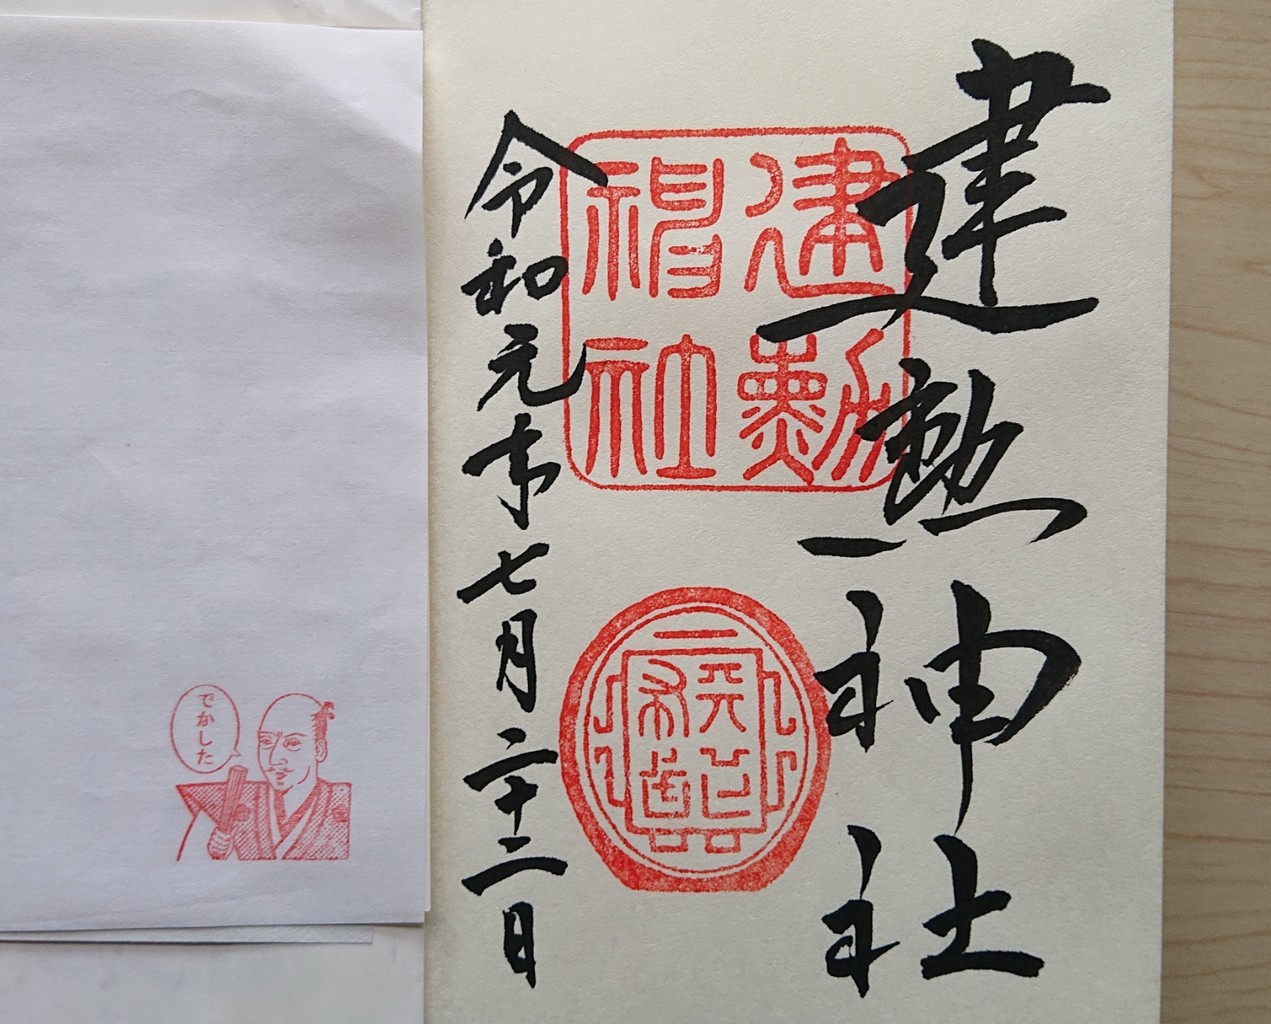 建勲神社
建勲
神社
令和元年七月二十二日
でかした